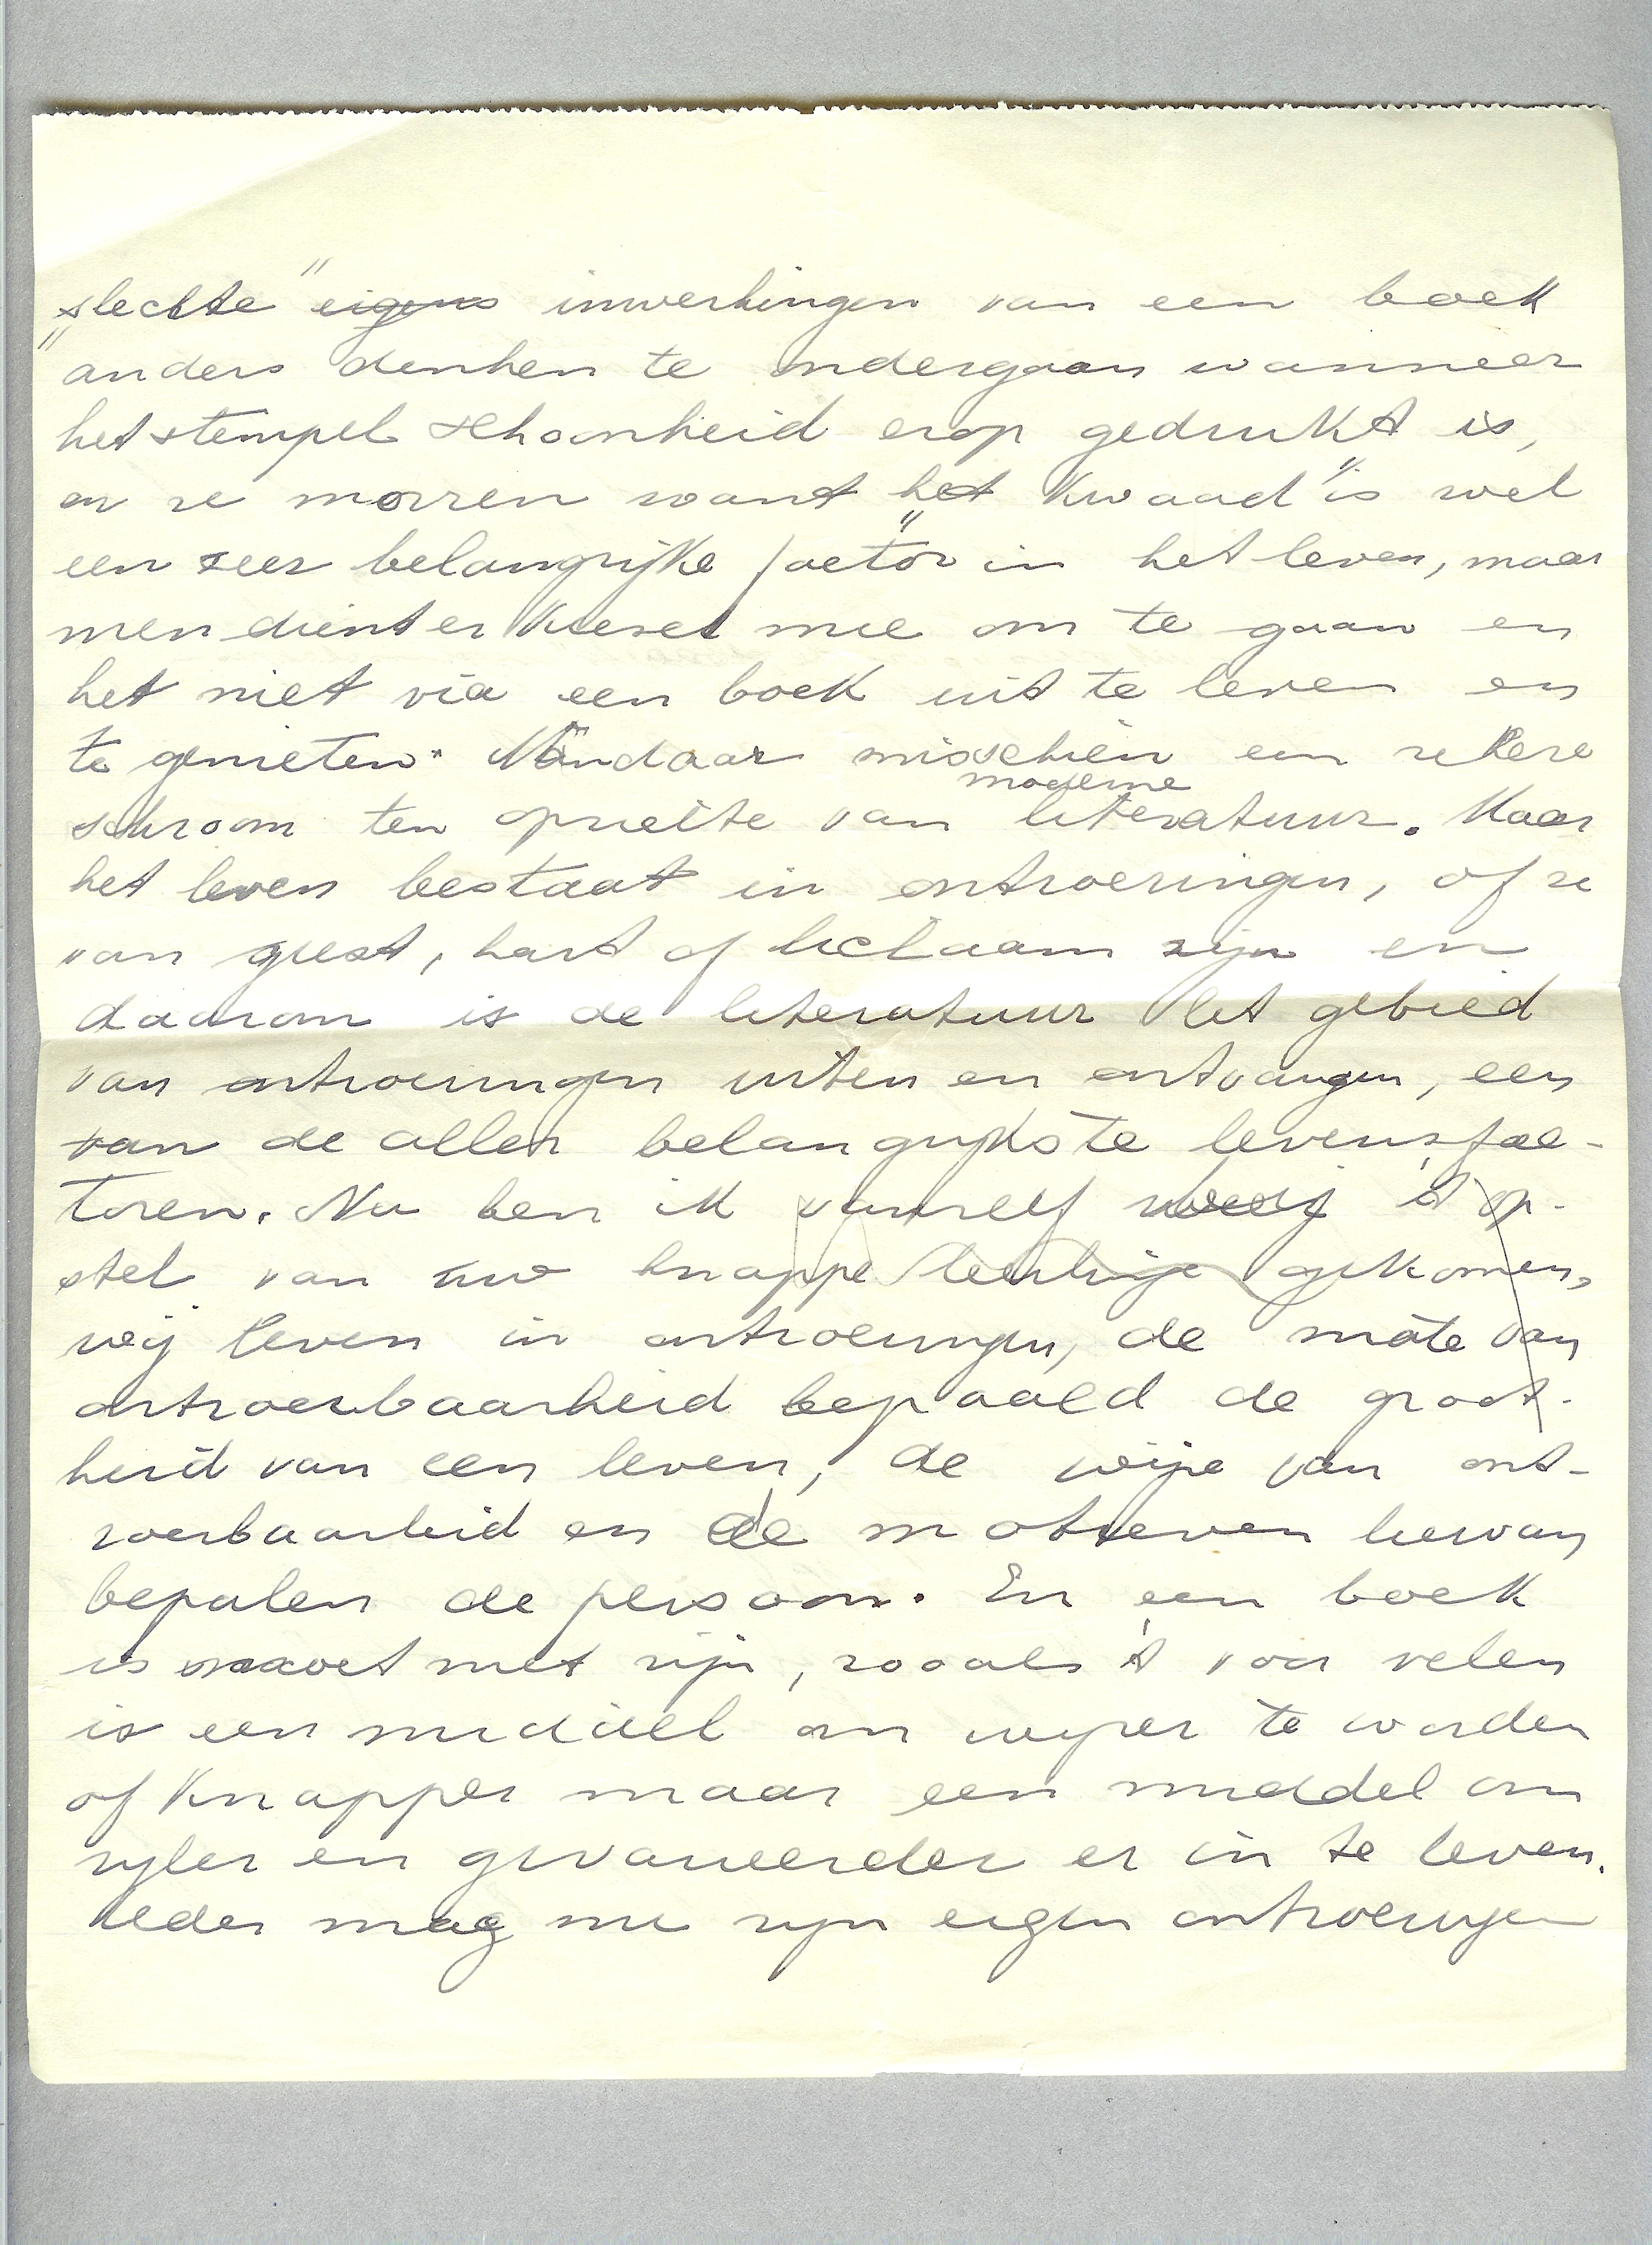 „slechte" eigens inwerkingen van een boek
anders denken te ondergaan wanneer
het stempel schoonheid erop gedrukt is,
en ze morren want „het kwaad" is wel
een zeer belangrijke factor in het leven, maar
men dient er kiesch mee om te gaan en
het niet via een boek uit te leven en
te genieten. Vandaar misschien een zekere
schroom ten opzichte van moderne literatuur. Maar
het leven bestaat in ontroeringen, of ze
van geest, hart of lichaam zijn en
daarom is de literatuur het gebied
van ontroeringen uiten en ontvangen, een
van de aller belangrijkste levensfac-
toren. Nu ben ik vanzelf 't op-
stel van uw knappe leerlinge gekomen,
wij leven in ontroeringen, de mate van
ontroerbaarheid bepaald de groot-
heid van een leven, de wijze van ont-
roerbaarheid en de motieven hiervan
bepalen de persoon. En een boek
is moet niet zijn, zooals 't voor velen
is een middel om wijzer te worden
of knapper maar een middel om
rijker en gevarieerder er in te leven.
Ieder mag nu zijn eigen ontroeringen